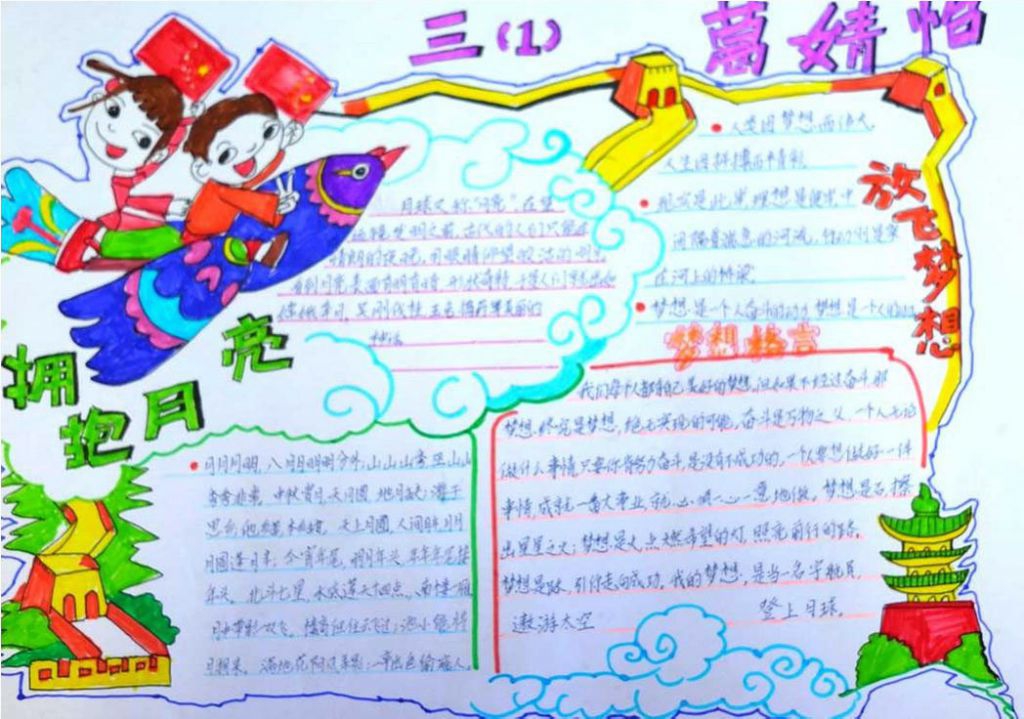 三(1) 葛婧怡
放飞梦想
拥抱月亮
月球又称“月亮”,在望
远镜发明之前,古代的人们只能在
晴朗的夜晚,用眼睛仰望皎洁的明月,
看到月亮表面有明有暗,形状奇特,于是人们
嫦娥奔月、吴刚伐桂、玉兔
传说
人类因梦想而伟大,
人生因拼搏而精彩,
现实是此岸,理想是彼岸中
间隔着湍急的河流,行动则是架
在河上的桥梁,
梦想是一个人奋斗的动力,梦想是个人的
梦想格言
我们每个人都有自己美好的梦想,但如果不经过奋斗,那
梦想终究是梦想,绝无实现的可能,奋斗是万物之父,一个人无论
做什么事情,只要你肯努力奋斗,是没有不成功的,一个人要想做好一件
事情,成就一番大事业,就必须一心一意地做。梦想是石,擦
出星星之火;梦想是火,点燃希望的灯,照亮前行的路,
梦想是路,引你走向成功。我的梦想,是当一名宇航员,
遨游太空 登上月球。
日月月明,八月日明明分外,山山山
中秋赏月,天月圆,地月缺;游子
思乡, 天上月圆,人间月半,月月
月圆逢月半;今宵年尾,明月年头,年年年尾接
年头。北斗七星,水底连天十四点,南楼一雁,
月中带影一双飞,
满地花阴